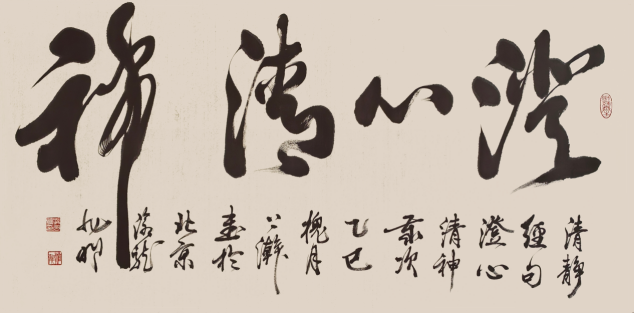 澄心清神
清静
经句
澄心
清神
岁次
乙巳
槐月
上澣
书于
北京